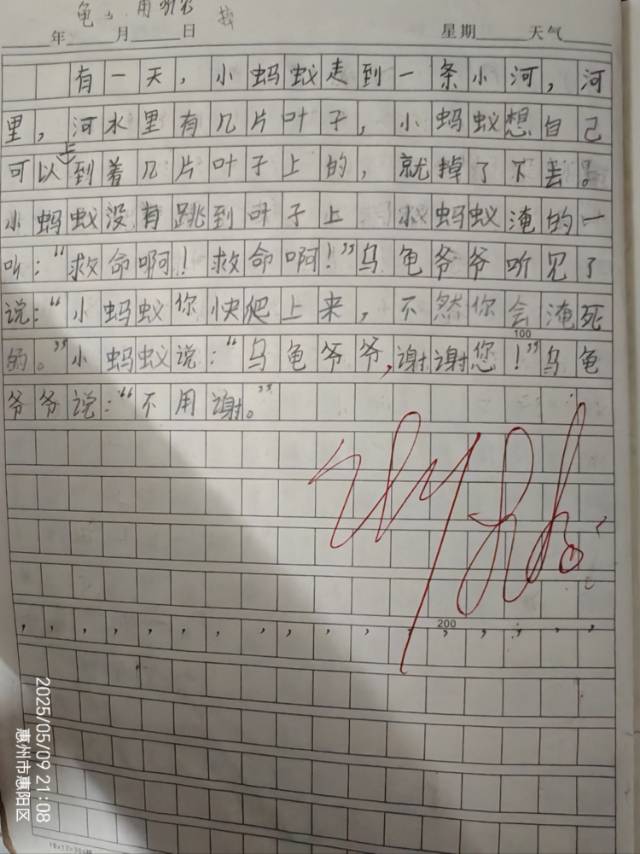 龟 用 听 我
年 月 日 星期 天气
有一天，小蚂蚁走到一条小河，河
里，河水里有几片叶子，小蚂蚁想自己
可以去到着几片叶子上的，就掉了下去。
小蚂蚁没有跳到叶子上 小蚂蚁淹的一
听：“救命啊！救命啊！”乌龟爷爷听见了
说：“小蚂蚁你快爬上来，不然你会淹死
100
的。”小蚂蚁说：“乌龟爷爷，谢谢您！”乌龟
爷爷说：“不用谢。”
200
2025/05/09 21:08
惠州市惠阳区